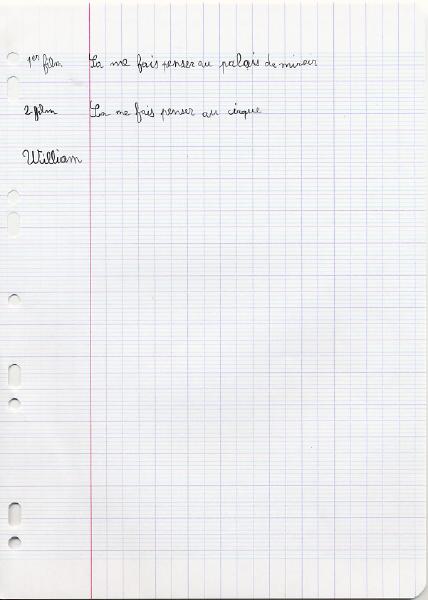 1er film Sa me fais penser au palais de miroir
2 film Sa me fais penser au cirque
William